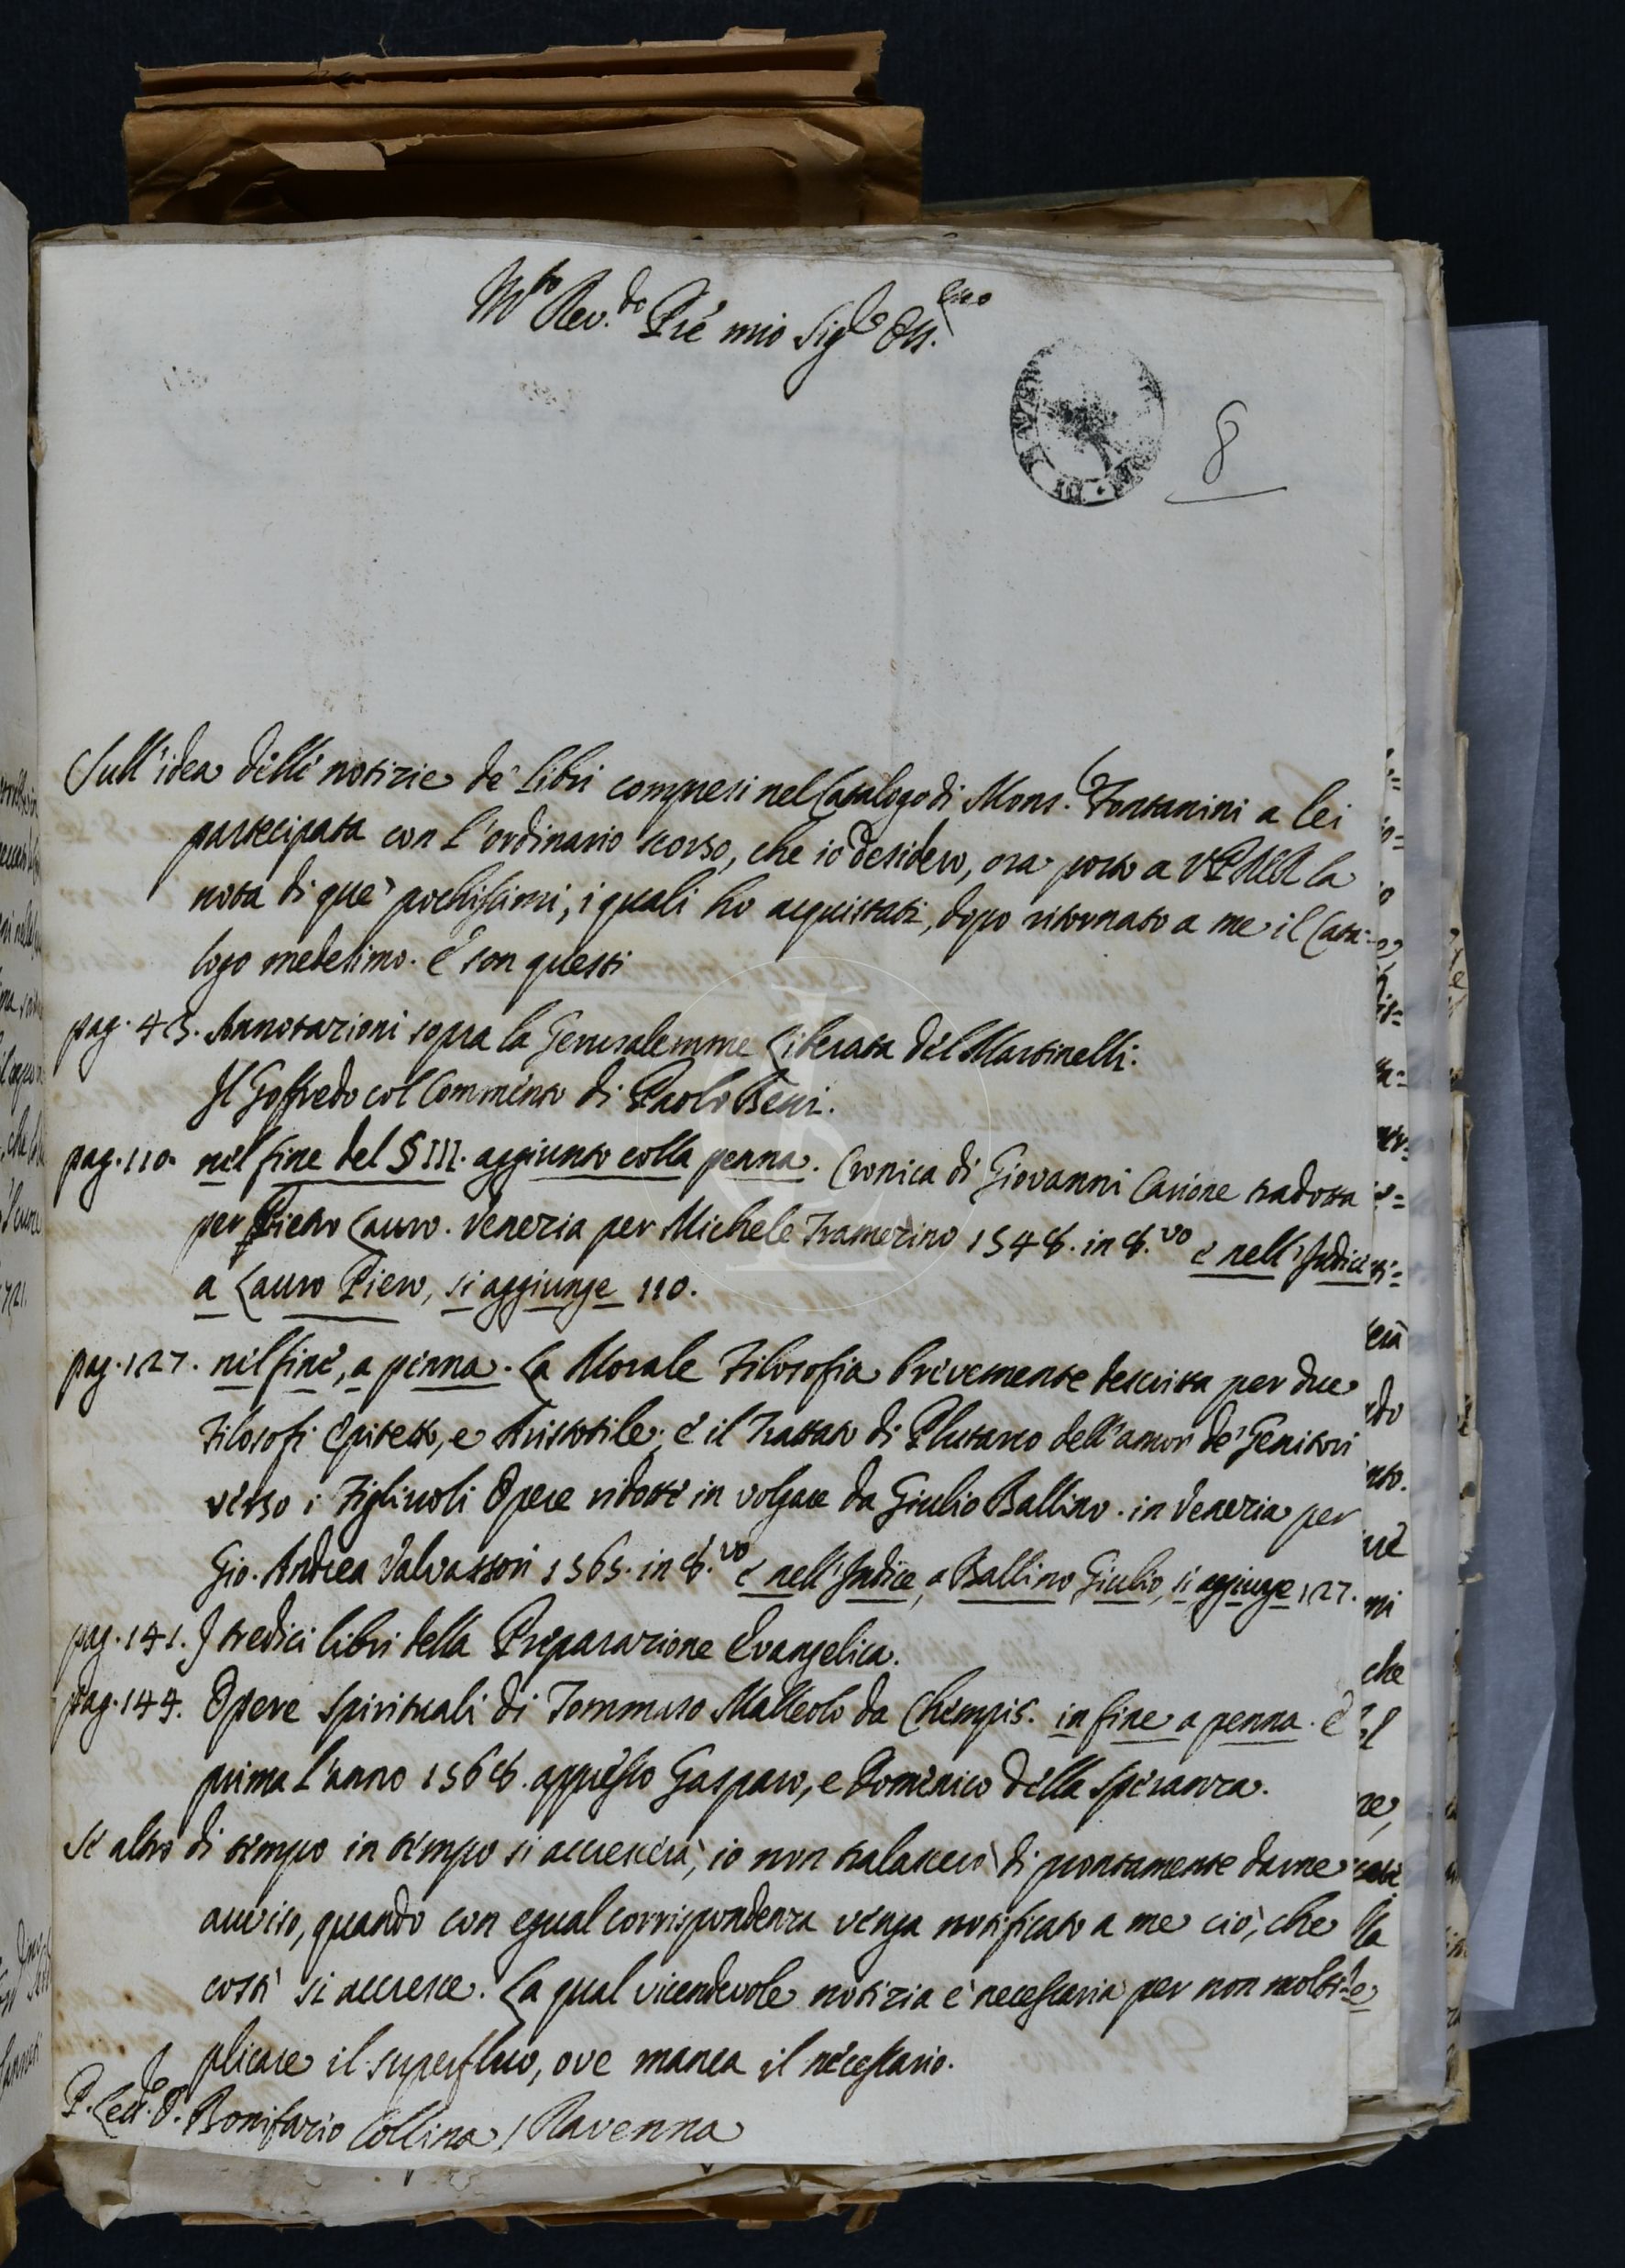 M.to Rev.do P.re mio Sig.re Oss.mo
8
Sull'idea delle notizie de' libri compresi nel Catalogo di Mons.r Fontanini a lei
partecipata con l'ordinario scorso, che io desidero, ora porto a
nota di que' pochissimi, i quali ho acquistati, dopo ritornato a me il Cata-
logo medesimo. e son questi
pag. 43. Annotazioni sopra la Gerusalemme Liberata del Martinelli.
Il Goffredo col Commento di Paolo Beni.
pag. 110. nel fine del § III. aggiunto colla penna. Cronica di Giovanni Carione tradotta
per Pietro Lauro. Venezia per Michele Tramezino 1548. in 8.vo e nell'Indice
a Lauro Piero, si aggiunge 110.
pag. 127. nel fine, a penna. La Morale Filosofia brevemente descritta per due
Filosofi Epitetto, e Aristotile; e il Trattato di Plutarco dell'amor de' Genitori
verso i Figliuoli Opere ridotte in volgare da Giulio Ballino. in Venezia per
Gio. Andrea Valvassori 1565. in 8.vo e nell'Indice, a Ballino Giulio, si aggiunge 127.
pag. 141. I tredici libri della Preparazione Evangelica.
pag. 144. Opere Spirituali di Tommaso Malleolo da Chempis. in fine a penna. e
prima l'anno 1568. appresso Gasparo, e Domenico della Speranza.
Se altro di tempo in tempo si accrescerà, io non tralascerò di prontamente darne
avviso, quando con egual corrispondenza venga notificato a me ciò, che
costì si accresce. La qual vicendevole notizia è necessaria per non molti-
plicare il superfluo, ove manca il necessario.
P. Lett.re D. Bonifazio Collina / Ravenna